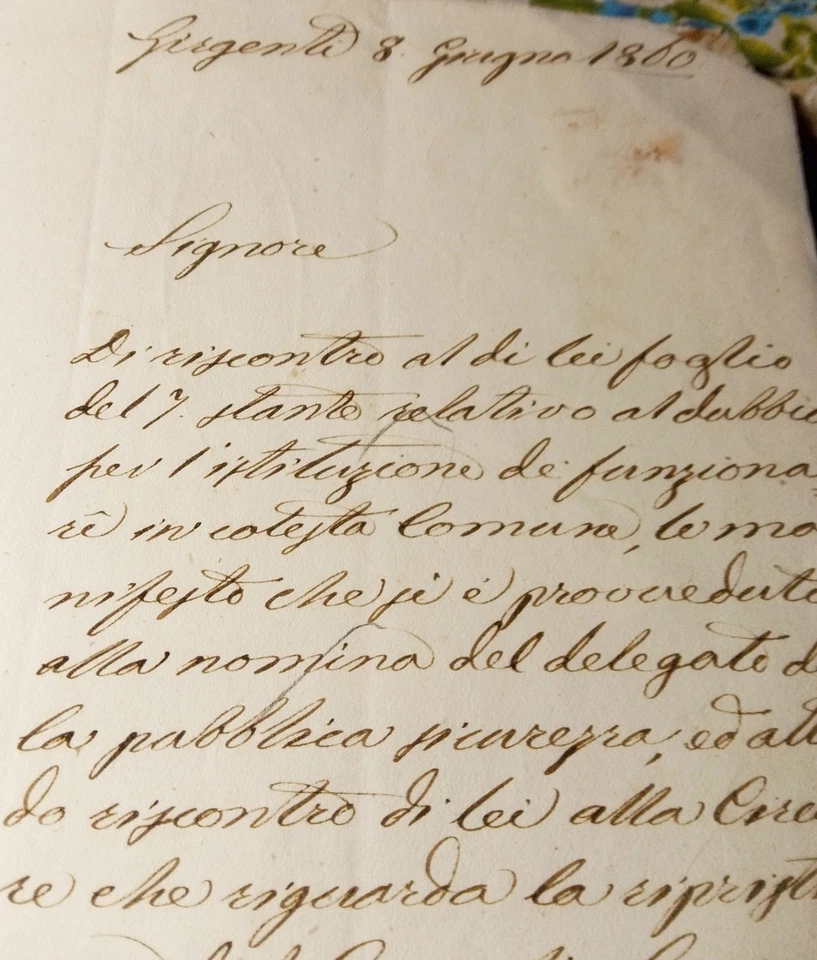 Girgenti 8. Giugno 1860
Signore
Di riscontro al di lei foglio
del 7. stante relativo al dubbio
per l'istituzione de' funziona
rî in cotesta Comune, le ma
nifesto che si é provveduto
alla nomina del delegato d
la pubblica sicurezza, ed att
do riscontro di lei alla Circ
re che riguarda la riprist